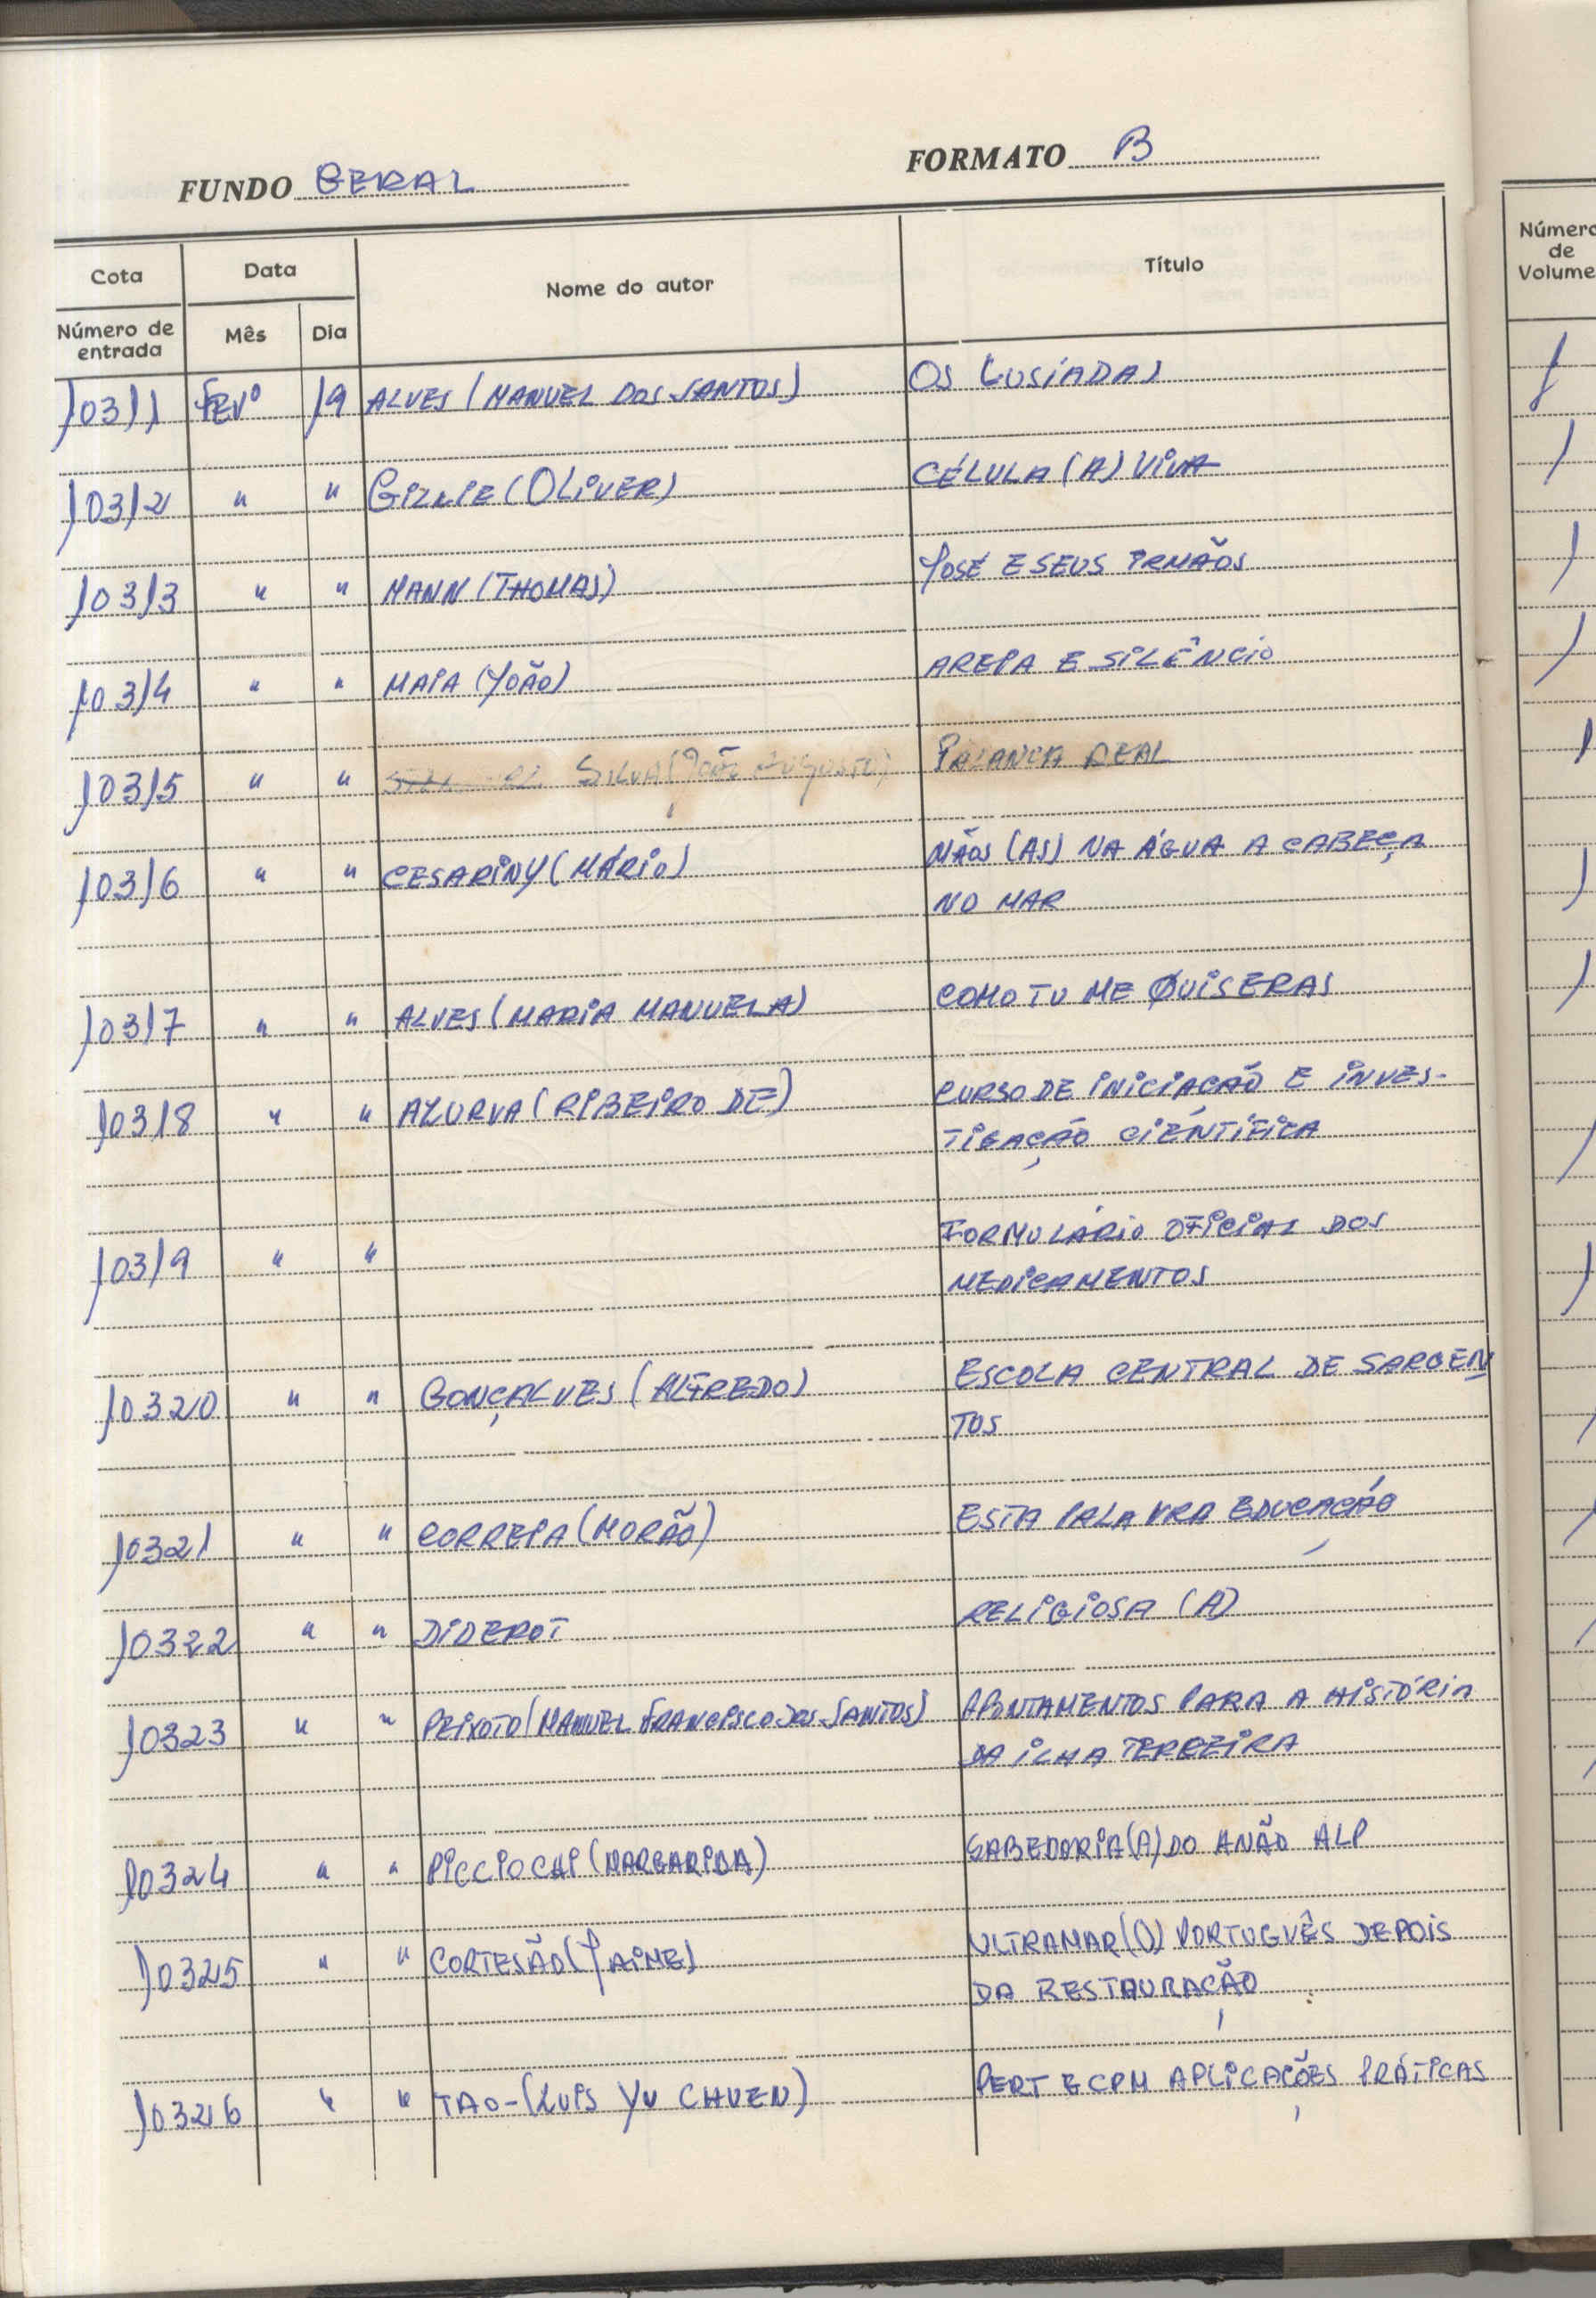 FUNDO GERAL FORMATO B
Cota Data Nome do autor Título Número de Volume
Número de entrada Mês Dia
10311 FEVº 19 ALVES (MANUEL DOS SANTOS) OS LUSÍADAS 1
10312 " " GILLIE (OLIVER) CÉLULA (A) VIVA 1
10313 " " MANN (THOMAS) JOSÉ E SEUS IRMÃOS 1
10314 " " MAIA (JOÃO) AREIA E SILÊNCIO 1
10315 " " SILVA (JOÃO AUGUSTO) PALANCA REAL 1
10316 " " CESARINY (MÁRIO) MÃOS (AS) NA ÁGUA A CABEÇA 1
NO MAR
10317 " " ALVES (MARIA MANUELA) COMO TU ME QUISERAS 1
10318 " " AZURVA (RIBEIRO DE) CURSO DE INICIAÇÃO E INVES-
TIGAÇÃO CIÉNTÍFICA 1
10319 " " FORMULÁRIO OFICIAL DOS
MEDICAMENTOS 1
10320 " " GONÇALVES (ALFREDO) ESCOLA CENTRAL DE SARGEN
TOS 1
10321 " " CORREIA (MORÃO) ESTA PALAVRA EDUCAÇÃO 1
10322 " " DIDEROT RELIGIOSA (A) 1
10323 " " PEIXOTO (MANUEL FRANCISCO DOS SANTOS) APONTAMENTOS PARA A HISTÓRIA
DA ILHA TERCEIRA 1
10324 " " PICCIOCHI (MARGARIDA) SABEDORIA (A) DO ANÃO ALP
10325 " " CORTESÃO (JAIME) ULTRAMAR (O) PORTUGUÊS DEPOIS
DA RESTAURAÇÃO
10326 " " TAO-(LUIS YU CHUEN) PERT E CPM APLICAÇÕES PRÁTICAS